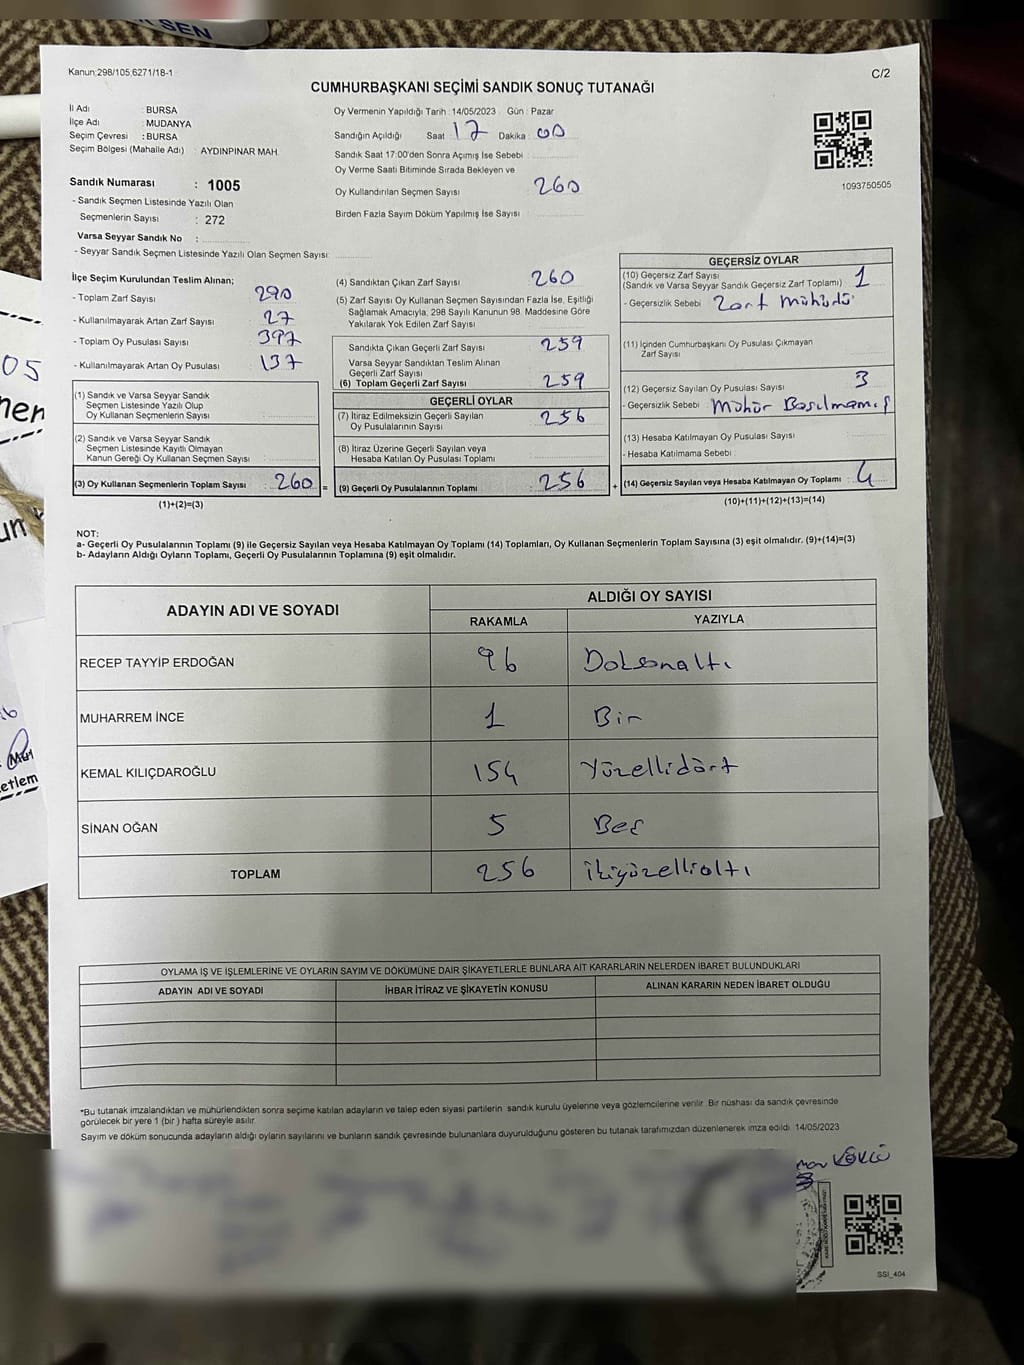 SEN
Kanun:298/105,6271/18-1
C/2
CUMHURBAŞKANI SEÇİMİ SANDIK SONUÇ TUTANAĞI
İl Adı : BURSA
İlçe Adı : MUDANYA
Seçim Çevresi : BURSA
Seçim Bölgesi (Mahalle Adı) : AYDINPINAR MAH.
Oy Vermenin Yapıldığı Tarih : 14/05/2023 Gün : Pazar
Sandığın Açıldığı Saat 17 Dakika : 00
Sandık Saat 17:00'den Sonra Açımış İse Sebebi :
Oy Verme Saati Bitiminde Sırada Bekleyen ve
Oy Kullandırılan Seçmen Sayısı 260
Birden Fazla Sayım Döküm Yapılmış İse Sayısı
1093750505
Sandık Numarası : 1005
- Sandık Seçmen Listesinde Yazılı Olan
Seçmenlerin Sayısı : 272
Varsa Seyyar Sandık No :
- Seyyar Sandık Seçmen Listesinde Yazılı Olan Seçmen Sayısı:
İlçe Seçim Kurulundan Teslim Alınan;
- Toplam Zarf Sayısı 290
- Kullanılmayarak Artan Zarf Sayısı 27
- Toplam Oy Pusulası Sayısı 397
- Kullanılmayarak Artan Oy Pusulası 137
(1) Sandık ve Varsa Seyyar Sandık
Seçmen Listesinde Yazılı Olup
Oy Kullanan Seçmenlerin Sayısı
(2) Sandık ve Varsa Seyyar Sandık
Seçmen Listesinde Kayıtlı Olmayan
Kanun Gereği Oy Kullanan Seçmen Sayısı
(3) Oy Kullanan Seçmenlerin Toplam Sayısı : 260 =
(1)+(2)=(3)
(4) Sandıktan Çıkan Zarf Sayısı 260
(5) Zarf Sayısı Oy Kullanan Seçmen Sayısından Fazla İse, Eşitliği
Sağlamak Amacıyla, 298 Sayılı Kanunun 98. Maddesine Göre
Yakılarak Yok Edilen Zarf Sayısı
Sandıkta Çıkan Geçerli Zarf Sayısı 259
Varsa Seyyar Sandıktan Teslim Alınan
Geçerli Zarf Sayısı
(6) Toplam Geçerli Zarf Sayısı 259
GEÇERLİ OYLAR
(7) İtiraz Edilmeksizin Geçerli Sayılan
Oy Pusulalarının Sayısı 256
(8) İtiraz Üzerine Geçerli Sayılan veya
Hesaba Katılan Oy Pusulası Toplamı
(9) Geçerli Oy Pusulalarının Toplamı : 256 +
GEÇERSİZ OYLAR
(10) Geçersiz Zarf Sayısı 1
(Sandık ve Varsa Seyyar Sandık Geçersiz Zarf Toplamı)
- Geçersizlik Sebebi : Zarf Mühürlü
(11) İçinden Cumhurbaşkanı Oy Pusulası Çıkmayan
Zarf Sayısı
(12) Geçersiz Sayılan Oy Pusulası Sayısı 3
- Geçersizlik Sebebi : Mühür Basılmamış
(13) Hesaba Katılmayan Oy Pusulası Sayısı
- Hesaba Katılmama Sebebi :
(14) Geçersiz Sayılan veya Hesaba Katılmayan Oy Toplamı : 4
(10)+(11)+(12)+(13)=(14)
NOT:
a- Geçerli Oy Pusulaları Toplamı (9) ile Geçersiz Sayılan veya Hesaba Katılmayan Oy Toplamı (14) Toplamları, Oy Kullanan Seçmenlerin Toplam Sayısına (3) eşit olmalıdır. (9)+(14)=(3)
b- Adayların Aldığı Oyların Toplamı, Geçerli Oy Pusulalarının Toplamına (9) eşit olmalıdır.
ADAYIN ADI VE SOYADI
ALDIĞI OY SAYISI
RAKAMLA YAZIYLA
RECEP TAYYİP ERDOĞAN 96 Doksanaltı
MUHARREM İNCE 1 Bir
KEMAL KILIÇDAROĞLU 154 Yüzellidört
SİNAN OĞAN 5 Beş
TOPLAM 256 ikiyüzellialtı
OYLAMA İŞ VE İŞLEMLERİNE VE OYLARIN SAYIM VE DÖKÜMÜNE DAİR ŞİKAYETLERLE BUNLARA AİT KARARLARIN NELERDEN İBARET BULUNDUKLARI
ADAYIN ADI VE SOYADI İHBAR İTİRAZ VE ŞİKAYETİN KONUSU ALINAN KARARIN NEDEN İBARET OLDUĞU
*Bu tutanak imzalandıktan ve mühürlendikten sonra seçime katılan adayların ve talep eden siyasi partilerin sandık kurulu üyelerine veya gözlemcilerine verilir. Bir nüshası da sandık çevresinde
görülecek bir yere 1 (bir) hafta süreyle asılır.
Sayım ve döküm sonucunda adayların aldığı oyların sayılarını ve bunların sandık çevresinde bulunanlara duyurulduğunu gösteren bu tutanak tarafımızdan düzenlenerek imza edildi. 14/05/2023
SSI_404